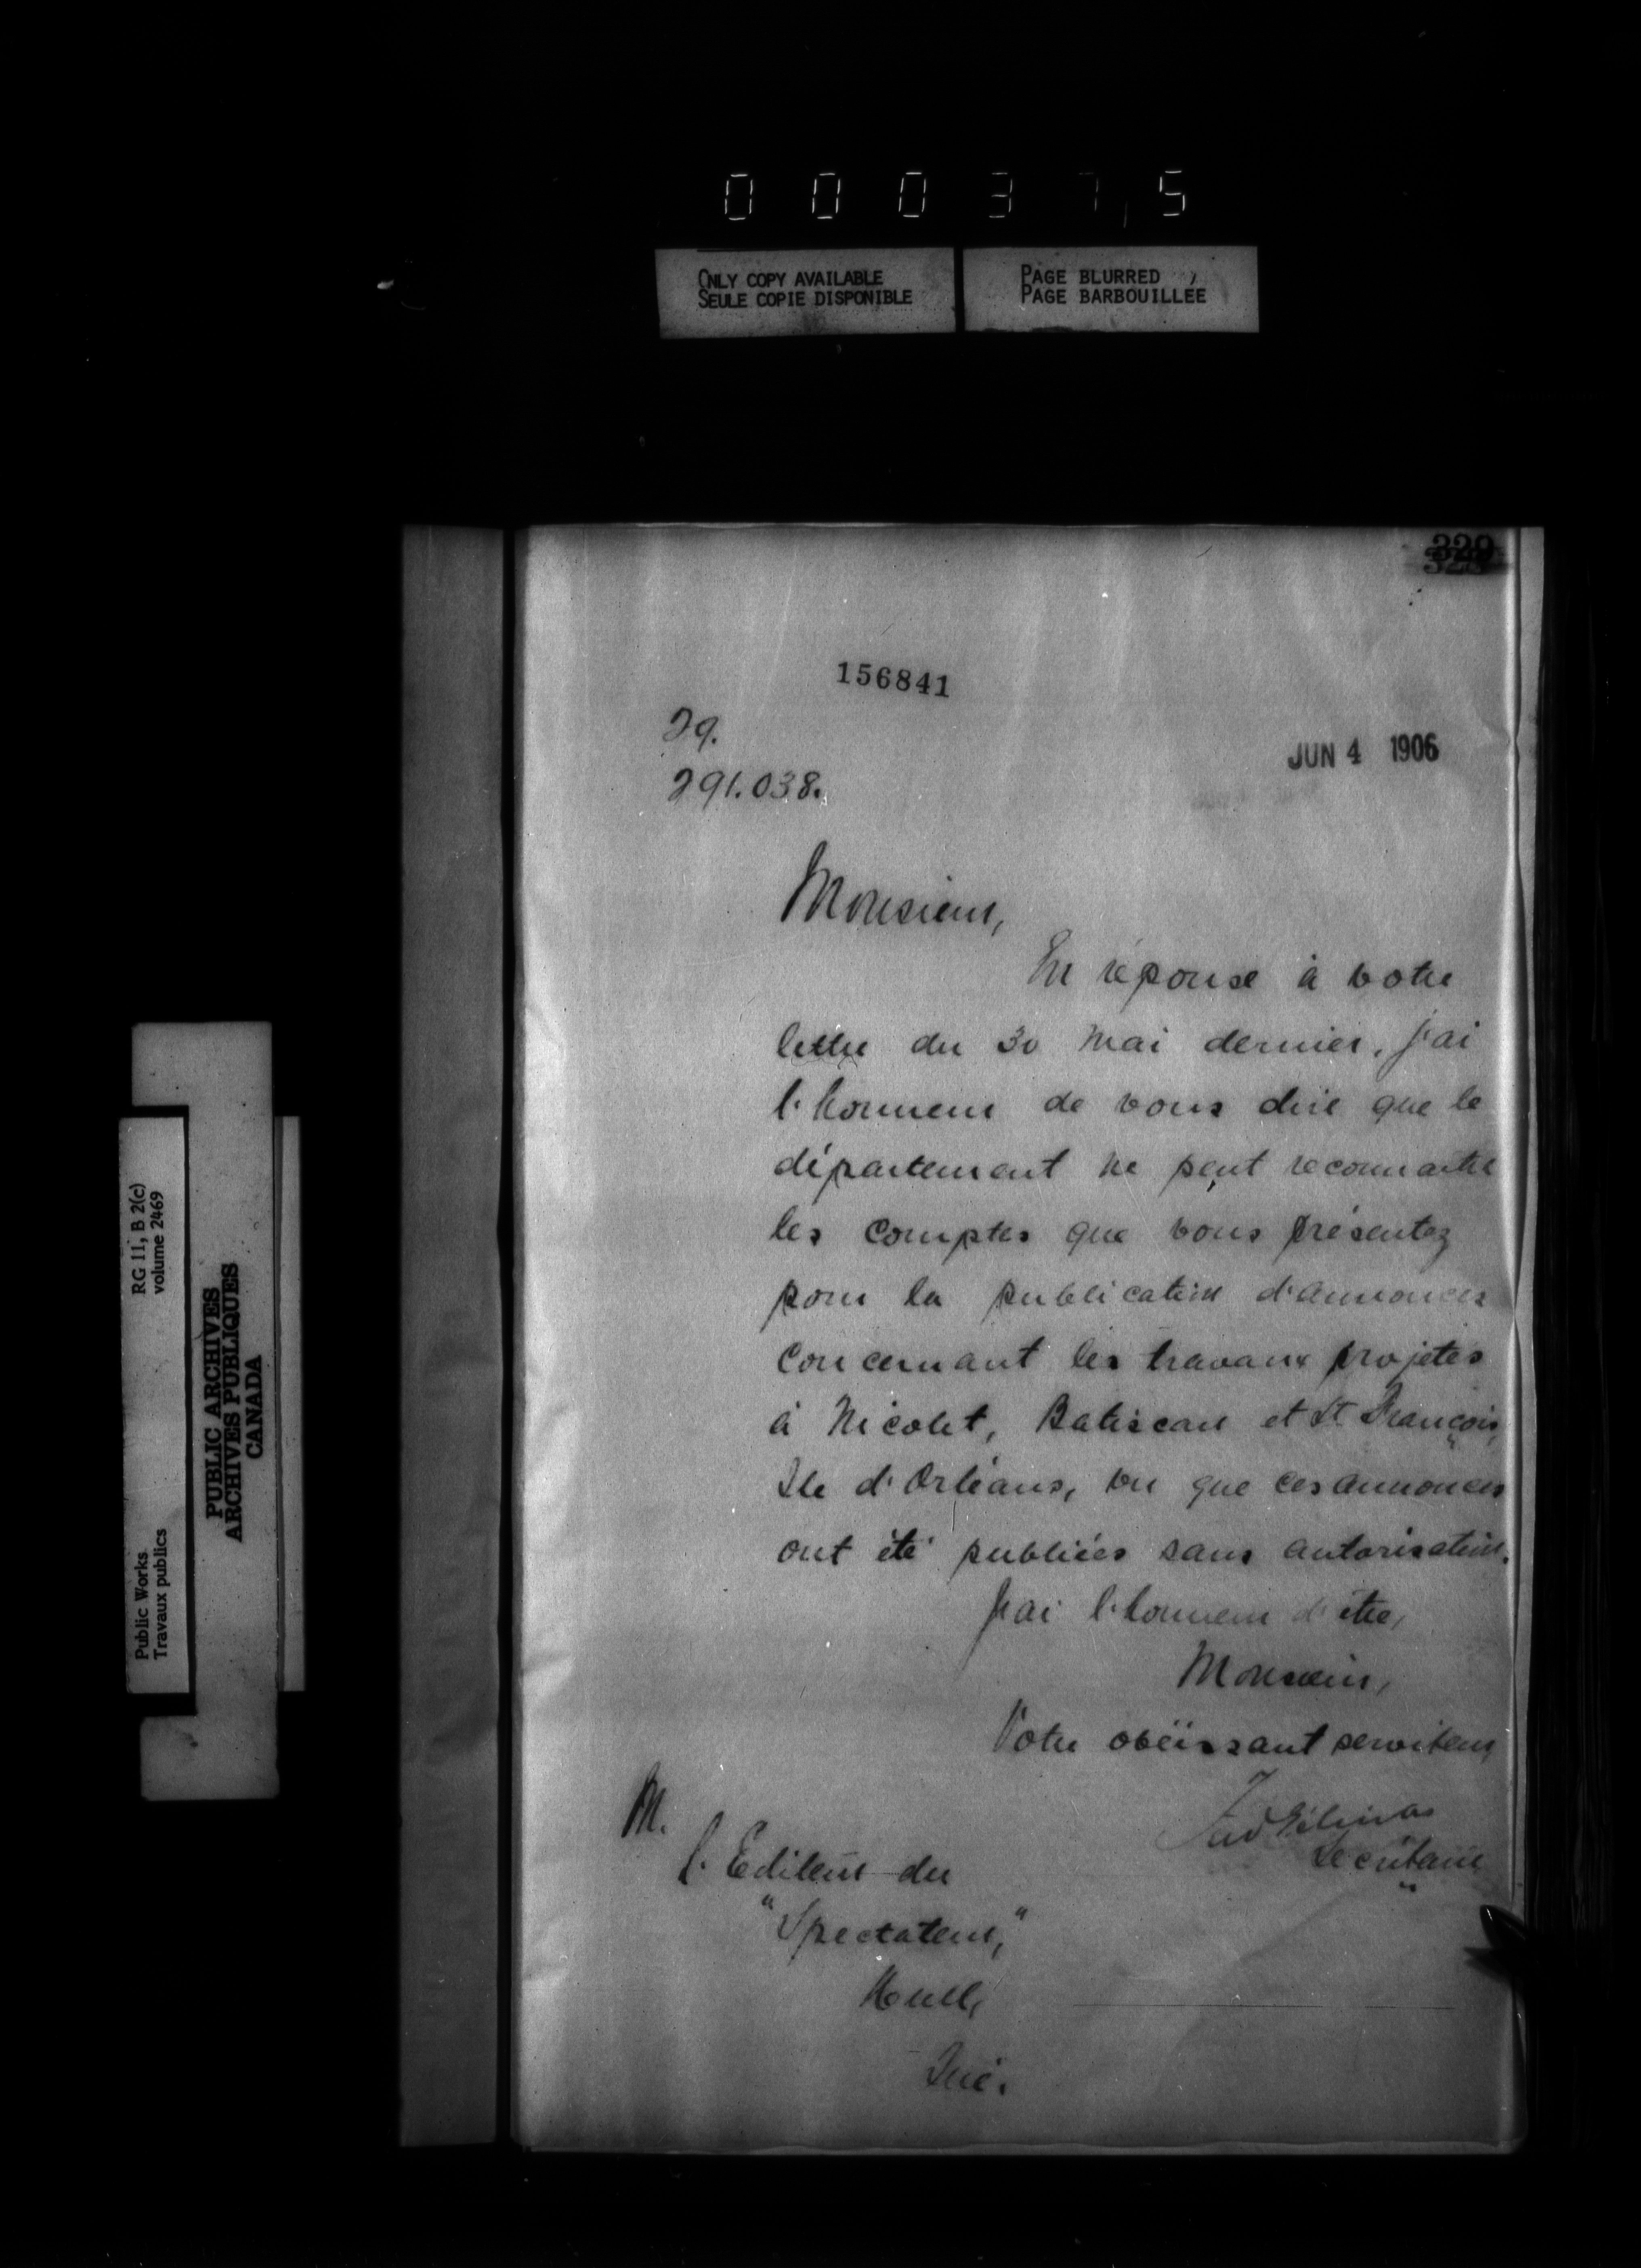 0 0 0 3 7 5
ONLY COPY AVAILABLE
SEULE COPIE DISPONIBLE
PAGE BLURRED
PAGE BARBOUILLEE
329
156841
29.
291.038.
JUN 4 1906
Monsieur,
En réponse à votre
lettre du 30 Mai dernier, j'ai
l'honneur de vous dire que le
département ne peut reconnaitre
les comptes que vous présentez
pour la publication d'annonces
concernant les travaux projetés
à Nicolet, Batiscan et St François,
Ile d'Orléans, vu que ces annonces
ont été publiées sans autorisation.
J'ai l'honneur d'être,
Monsieur,
Votre obéissant serviteur
Fred Gélinas
Secrétaire
M.
l'Editeur du
"Spectateur,"
Hull,
Qué.
Public Works
Travaux publics
RG 11, B 2(c)
volume 2469
PUBLIC ARCHIVES
ARCHIVES PUBLIQUES
CANADA